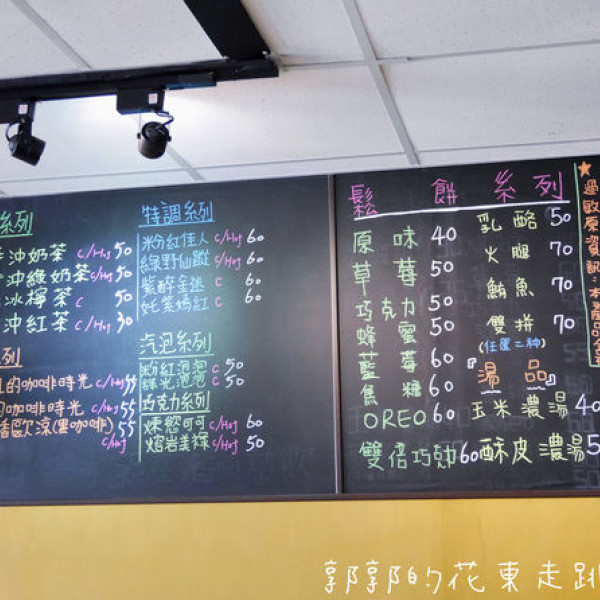 系列
沖奶茶 C/Hoj 50
沖綠奶茶 C/Hoj 50
冰檸茶 C 50
沖紅茶 C/Hoj 30
列
的咖啡時光 C/Hoj 45
的咖啡時光 C/Hoj 55
(黑咖啡) 55
C/Hoj
特調系列
粉紅佳人 C/Hoj 60
綠野仙蹤 C/Hoj 60
紫醉金迷 C 60
奼紫嫣紅 C 60
汽泡系列
粉紅泡泡 C 50
綠光泡泡 C 50
巧克力系列
可可 C/Hoj 60
熔岩 C/Hoj 50
鬆餅系列
原味 40
草莓 50
巧克力 50
蜂蜜 50
藍莓 60
焦糖 60
OREO 60
雙倍巧克力 60
乳酪 50
火腿 70
鮪魚 70
雙拼 70
(任選二種)
『湯品』
玉米濃湯 40
酥皮濃湯 5
★過敏原資訊:本產品含
郭郭的花東走跳